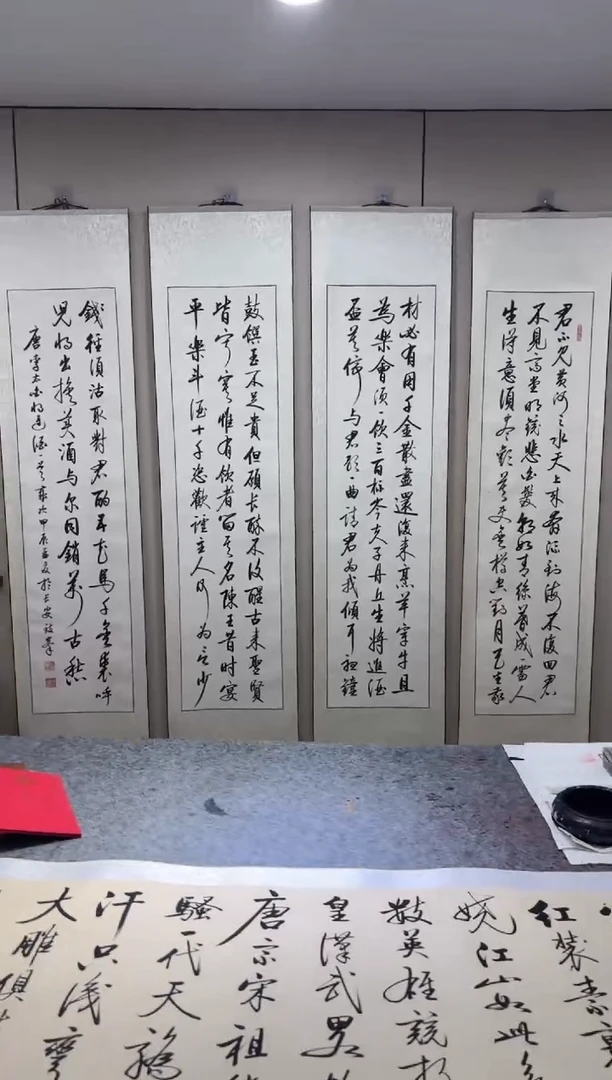 君不見黃河之水天上來奔流到海不復回君
不見高堂明鏡悲白髮朝如青絲暮成雪人
生得意須盡歡莫使金樽空對月天生我
材必有用千金散盡還復來烹羊宰牛且
為樂會須一飲三百杯岑夫子丹丘生將進酒
盃莫停与君歌一曲請君為我傾耳聽鐘
鼓饌玉不足貴但願長醉不復醒古來聖賢
皆寂寞惟有飲者留其名陳王昔時宴
平樂斗酒十千恣歡謔主人何為言少
錢徑須沽取對君酌五花馬千金裘呼
兒將出換美酒与尔同銷萬古愁
唐李太白將進酒一首歲次甲辰孟夏於長安
红装素
娆江山如此多
数英雄競折
皇漢武略
唐宗宋祖
騷一代天驕
汗只識彎
大雕俱往